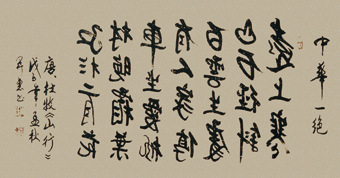 中華一絕
遠上寒
山石徑斜
白雲生處
有人家停
車坐愛楓
林晚霜葉
紅於二月花
唐杜牧《山行》
戊子年孟秋